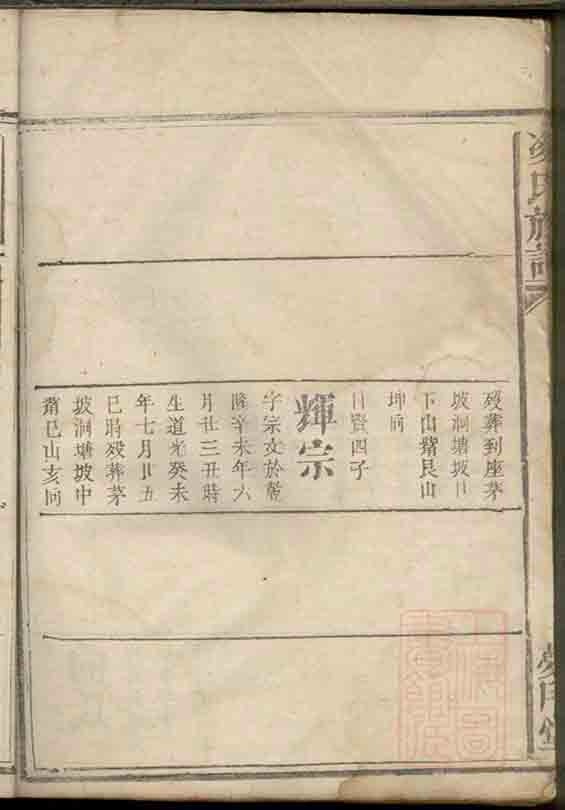 氏族譜
歿葬到座茅
坡洞塘坡日
下山背艮山
坤向
日賢四子
輝宗
字宗文於乾
隆辛未年六
月廿三丑時
生道光癸未
年七月廿五
巳時歿葬茅
坡洞塘坡中
背巳山亥向